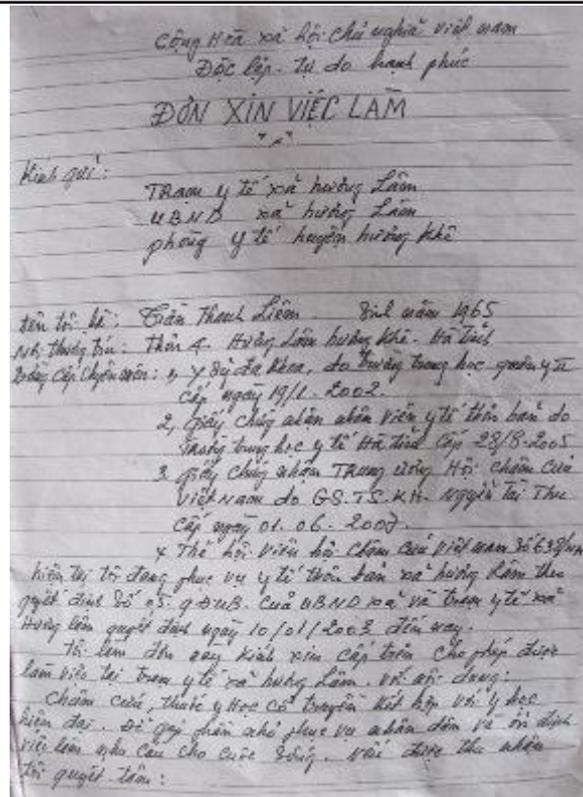 Cộng Hòa xã hội chủ nghĩa việt nam
Độc lập - tự do hạnh phúc
ĐƠN XIN VIỆC LÀM
Kính gửi:
TRạm y tế xã hương Lâm
UBND xã hương Lâm
phòng y tế huyện hương khê
tên tôi là: Trần Thanh Liêm. Sinh năm 1965
Thôn 4 - Hương Lâm hương khê - Hà Tĩnh
Bằng cấp chuyên môn: 1, Y Sỹ đa khoa, do trường trung học quân y II
cấp ngày 19/1 - 2002.
2, giấy chứng nhận nhân viên y tế thôn bản do
trường trung học y tế Hà tĩnh cấp 28/8-2005
3, giấy chứng nhận TRung ương Hội châm cứu
việt Nam do GS.TS.KH. Nguyễn Tài Thu
cấp ngày 01. 06. 2007.
4 Thẻ hội viên hội châm cứu việt nam
hiện tại tôi đang phục vụ y tế thôn bản xã hương Lâm theo
quyết định số 05. QĐUB. của UBND xã và trạm y tế xã
Hương lâm quyết định ngày 10/01/2003 đến nay.
Tôi làm đơn này kính xin cấp trên cho phép được
làm việc tại trạm y tế xã hương Lâm. với nội dung:
châm cứu, thuốc y học cổ truyền kết hợp với y học
hiện đại. Để góp phần nhỏ phục vụ nhân dân và ổn định
việc làm nhu cầu cho cuộc sống. nếu được thu nhận
tôi quyết tâm: